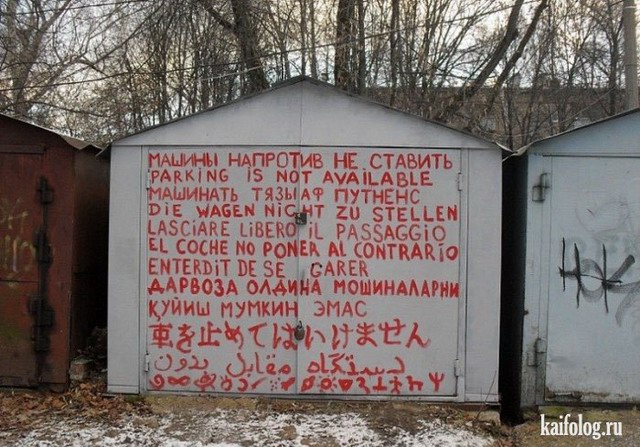 МАШИНЫ НАПРОТИВ НЕ СТАВИТЬ
PARKING IS NOT AVAILABLE
МАШИНАТЬ ТЯЗЫ АФ ПУТНЕНС
DIE WAGEN NICHT ZU STELLEN
LASCIARE LIBERO IL PASSAGGIO
EL COCHE NO PONER AL CONTRARIO
ENTERDIT DE SE GARER
ДАРВОЗА ОЛДИНА МОШИНАЛАРНИ
ҚУЙИШ МУМКИН ЭМАС
車を止めてはいけません
دستگاه مقابل بدون
kaifolog.ru